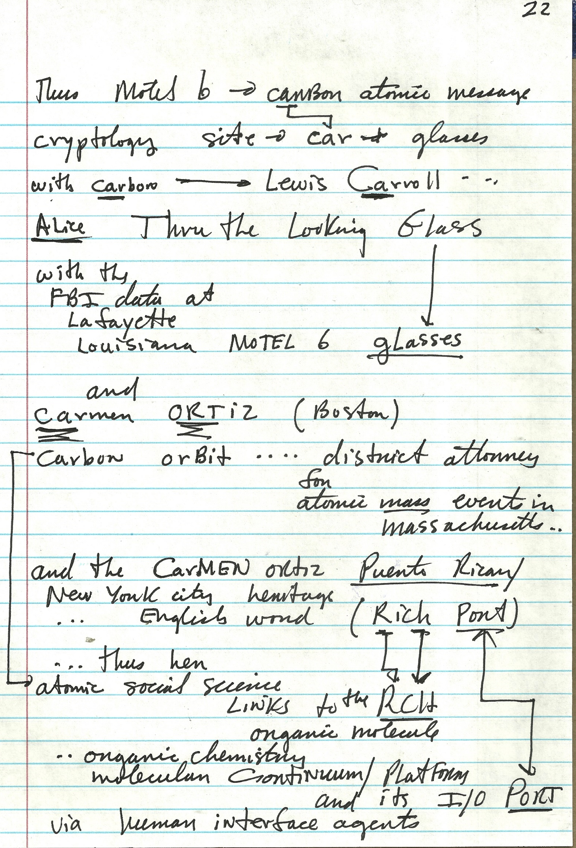 22
Thus Motel 6 → carbon atomic message
cryptology site → car → glasses
with carbon → Lewis Carroll - - .
Alice Thru the Looking Glass
with the
FBI data at
Lafayette
Louisiana MOTEL 6 glasses
and
Carmen ORTIZ (Boston)
Carbon orBit .... district attorney
for
atomic mass events in
massachusetts ..
and the CarMEN ortiz Puerto Rican/
New York city heritage
... English word (Rich Port)
... thus her
atomic social science
LINKS to the RCH
organic molecule
.. organic chemistry
molecular Continuum/Platform
and its I/O PORT
via human interface agents